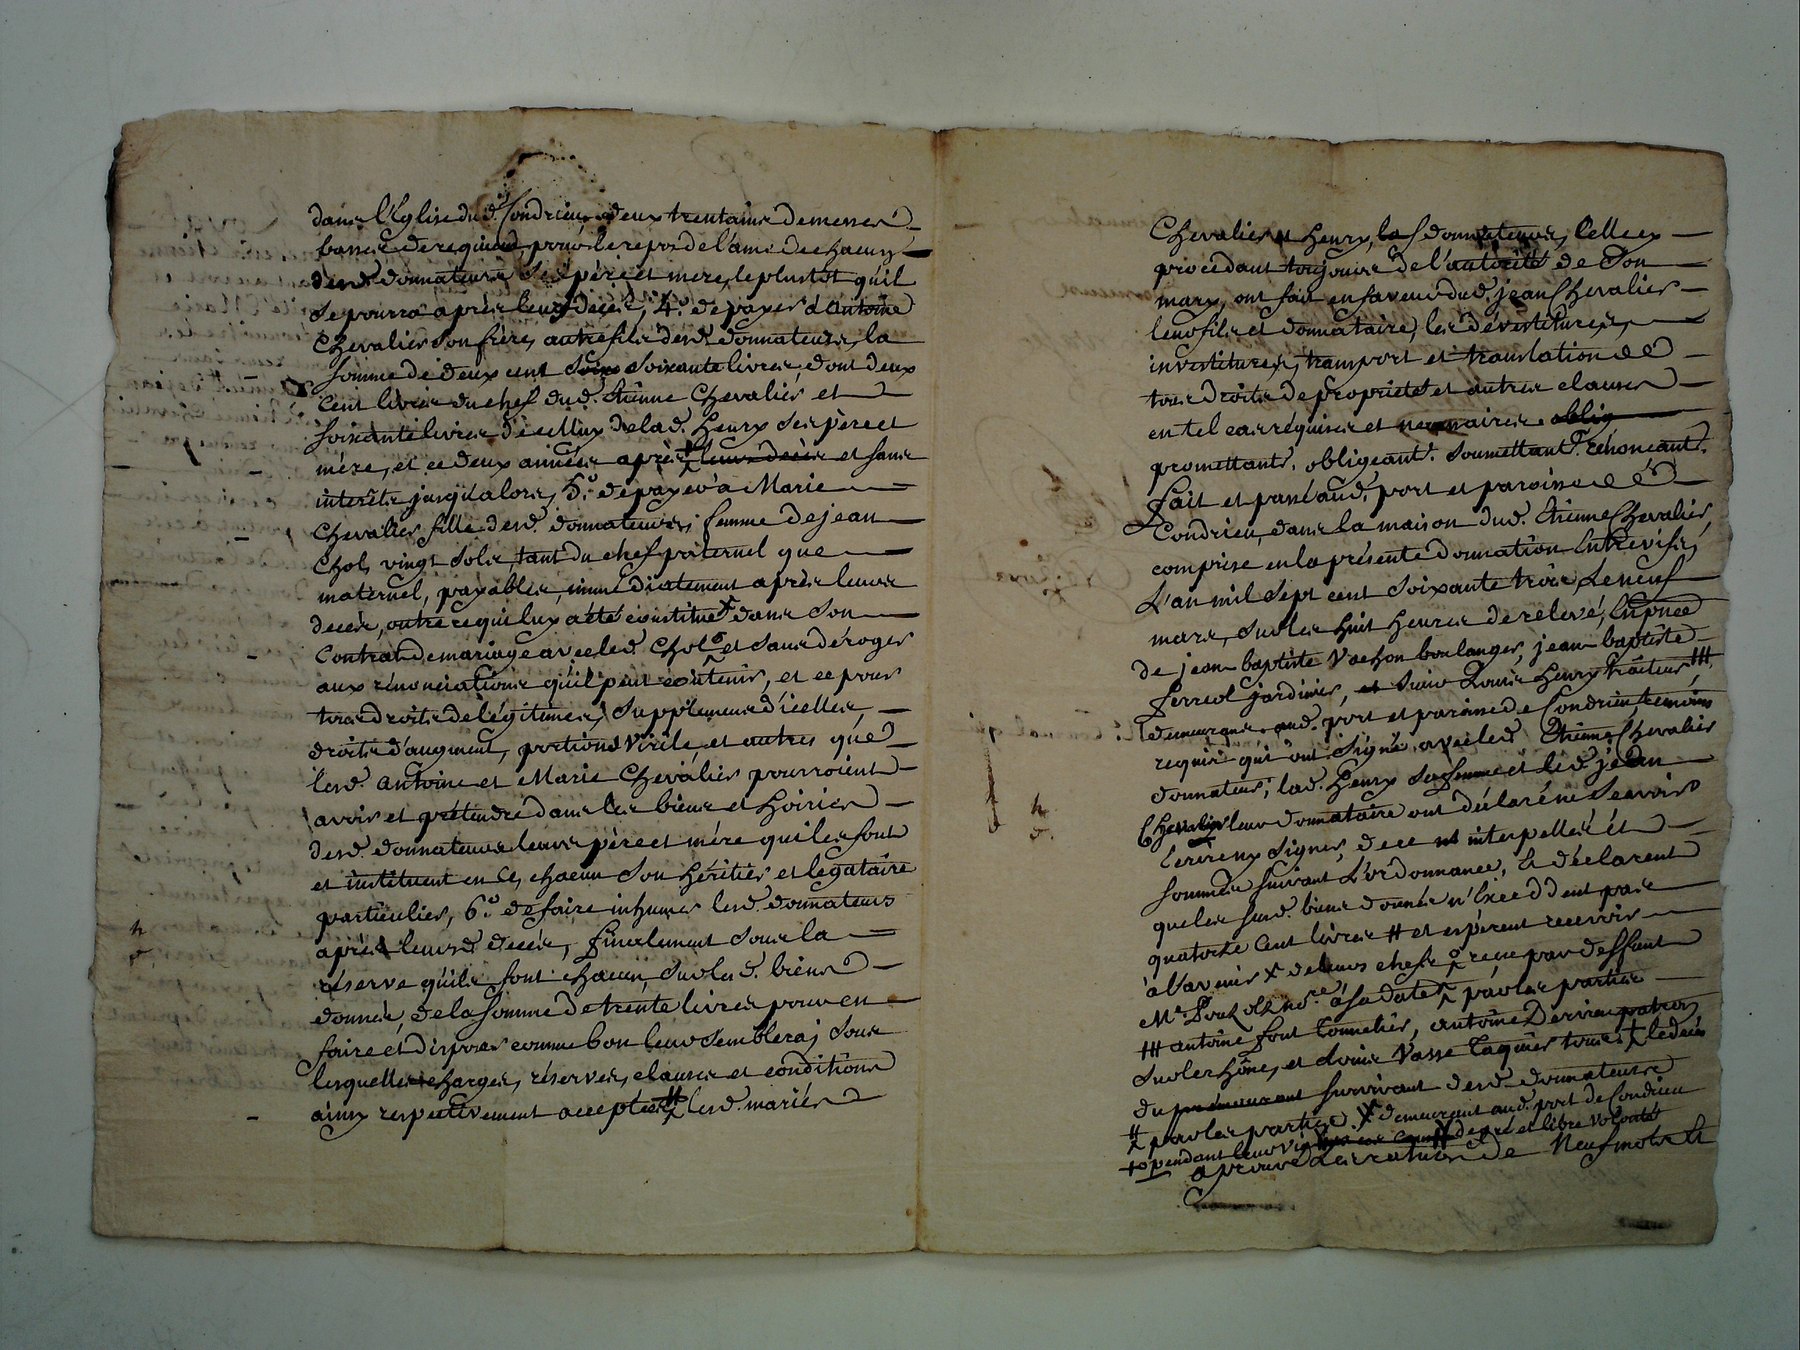 dans l'Eglise dud. Condrieu deux trentaine de messes
basses de requiem pour le repos de l'ame de chacun
desd. donnateurs ses père et mere, le plustot qu'il
se pourra après leurs décès, 4.° de payer à Antoine
Chevalier son frère, autre fils desd. donnateurs, la
somme de deux cent soixante livres dont deux
Cent livres du chef dud. Etienne Chevalier et
soixante livres de celluy de lad. Henry ses père et
mère, et ce deux années après leurs décès et sans
interêts jusqu'alors, 5.° de payer à Marie
Chevalier fille desd. donnateurs, femme de jean
Chol, vingt sols, tant du chef paternel que
maternel, payables immediatement après leurs
decès, outre ce qui luy a été constitué dans son
Contrat de mariage avec led. Chol et sans déroger
aux rénonciations qu'il peut contenir, et ce pour
tous droits de légitimes, supplement d'icelles,
droits d'augment, portions virile, et autres que
lesd. Antoine et Marie Chevalier pourroient
avoir et prétendre dans les biens et hoiries
desd. donnateurs leurs père et mére qui les font
et instituent en ce, chacun son héritier et légataire
particulier, 6.° de faire inhumer lesd. donnateurs
après leursd. decès, finalement sous la
réserve qu'ils font chacun, sur lesd. biens
donnés, de la somme de trente livres pour en
faire et disposer comme bon leur semblera; sous
lesquelles charges, réserves, clauses et conditions
ainsy respectivement acceptées lesd. mariés
Chevalier et Henry, lesd. donnateurs, Celle cy
procedant toujours de l'autorité de son
mary, ont fait en faveur dud. jean Chevalier
leur fils et donnataire, les dévestitures,
investitures, transport et translation de
tous droits de propriété et autres clauses
en tel cas réquises et necessaires oblig
promettants. obligeant. soumettant. rénonceant.
fait et passé aud. port et paroisse de
Condrieu, dans la maison dud. Etienne Chevalier
comprise en la présente donnation entrevifs,
L'an mil sept cent soixante trois, Le neuf
mars, sur les huit heures de relevé, En pnce
de jean baptiste Vachon boulanger, jean baptiste
ferreol jardinier, et sieur Louis Henry traiteur,
demeurants aud. port et paroisse de Condrieu, temoins
requis qui ont signé avec led. Etienne Chevalier
donnateur, lad. Henry sa femme et led. jean
Chevalier leur donnataire ont déclaré ne sçavoir
Ecrire ny signer, de ce interpellés et
sommés suivant L'ordonnance, Et déclarent
que les susd. biens donnés n'Excèddent pas
quatorze Cent livres et espérent recevoir
à l'avenir de leurs chefs reçue par deffunt
Me nore à sa date par les parties
antoine font tonnelier, antoine Dervieu patron
sur le rhône, et Louis Vasse Taquier tous le decès
du premourant survivant desd. donnateurs
par les parties. demeurant aud. port de Condrieu
pendant leur vie de gré et libre volonté
aprouvé La rature de Neuf mots Et